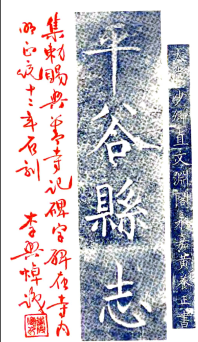 太常寺少卿直文淵閣永嘉黃養正書
平谷縣志
集勅賜興善寺記碑字碑在寺内
明正統十三年石刻 李興焯識